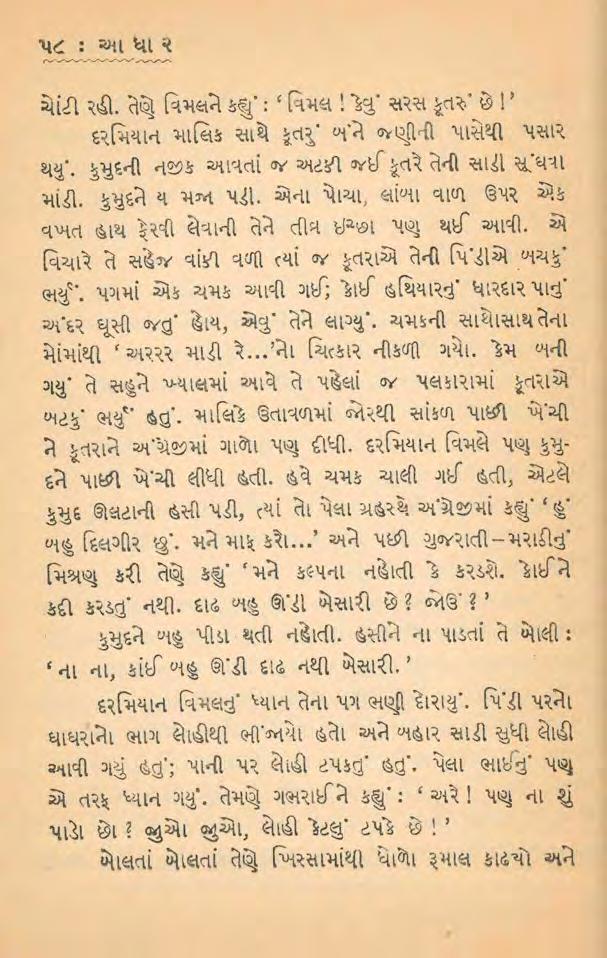 ૫૮ : આ ધા ર
ચોંટી રહી. તેણે વિમલને કહ્યું : ‘ વિમલ ! કેવું સરસ કૂતરું છે !’
દરમિયાન માલિક સાથે કૂતરું બંને જણીની પાસેથી પસાર
થયું. કુમુદની નજીક આવતાં જ અટકી જઈ કૂતરે તેની સાડી સૂંઘવા
માંડી. કુમુદને ય મજા પડી. એના પોચા, લાંબા વાળ ઉપર એક
વખત હાથ ફેરવી લેવાની તેને તીવ્ર ઇચ્છા પણ થઈ આવી. એ
વિચારે તે સહેજ વાંકી વળી ત્યાં જ કૂતરાએ તેની પિંડીએ બચકું
ભર્યું. પગમાં એક ચમક આવી ગઈ; કોઈ હથિયારનું ધારદાર પાનું
અંદર ઘૂસી જતું હોય, એવું તેને લાગ્યું. ચમકની સાથોસાથ તેના
મોંમાંથી ‘ અરરર માડી રે...’નો ચિત્કાર નીકળી ગયો. કેમ બની
ગયું તે સહુને ખ્યાલમાં આવે તે પહેલાં જ પલકારામાં કૂતરાએ
બટકું ભર્યું હતું. માલિકે ઉતાવળમાં જોરથી સાંકળ પાછી ખેંચી
ને કૂતરાને અંગ્રેજીમાં ગાળો પણ દીધી. દરમિયાન વિમલે પણ કુમુ-
દને પાછી ખેંચી લીધી હતી. હવે ચમક ચાલી ગઈ હતી, એટલે
કુમુદ ઊલટાની હસી પડી, ત્યાં તો પેલા ગ્રહસ્થે અંગ્રેજીમાં કહ્યું ‘ હું
બહુ દિલગીર છું. મને માફ કરો...’ અને પછી ગુજરાતી–મરાઠીનું
મિશ્રણ કરી તેણે કહ્યું ‘મને કલ્પના નહોતી કે કરડશે. કોઈને
કદી કરડતું નથી. દાઢ બહુ ઊંડી બેસારી છે ? જોઉં ? ’
કુમુદને બહુ પીડા થતી નહોતી. હસીને ના પાડતાં તે બોલી :
‘ ના ના, કાંઈ બહુ ઊંડી દાઢ નથી બેસારી. ’
દરમિયાન વિમલનું ધ્યાન તેના પગ ભણી દોરાયું. પિંડી પરનો
ઘાઘરાનો ભાગ લોહીથી ભીંજાયો હતો અને બહાર સાડી સુધી લોહી
આવી ગયું હતું; પાની પર લોહી ટપકતું હતું. પેલા ભાઈનું પણ
એ તરફ ધ્યાન ગયું. તેમણે ગભરાઈને કહ્યું : ‘ અરે ! પણ ના શું
પાડો છો ? જુઓ જુઓ, લોહી કેટલું ટપકે છે ! ’
બોલતાં બોલતાં તેણે ખિસ્સામાંથી ધોળો રૂમાલ કાઢ્યો અને